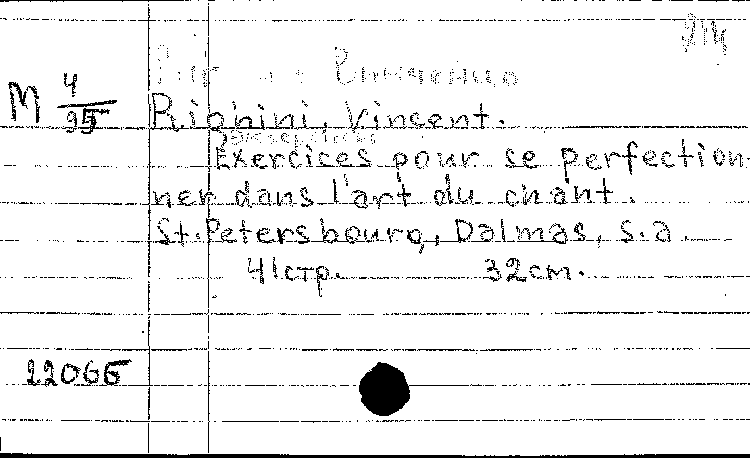 Винченцо
M 4/95 Righini, Vincent.
Exercices pour se perfection-
ner dans l'art du chant.
St.Petersbourg, Dalmas, s.a.
41стр. 32cm.